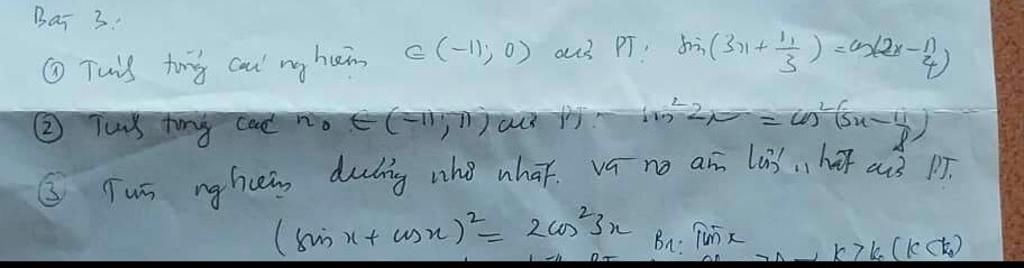 Bài 3:
① Tính tổng các nghiệm ∈ (-π; 0) của PT: sin(3x + π/3) = cos(2x - π/4)
② Tính tổng các no ∈ (-π; π) của PT: sin²2x = cos²(5x - π/8)
③ Tìm nghiệm dương nhỏ nhất và no âm lớn nhất của PT.
(sin x + cos x)² = 2cos²3x Bn: Tìm x
k > k₀ (k < k₀)